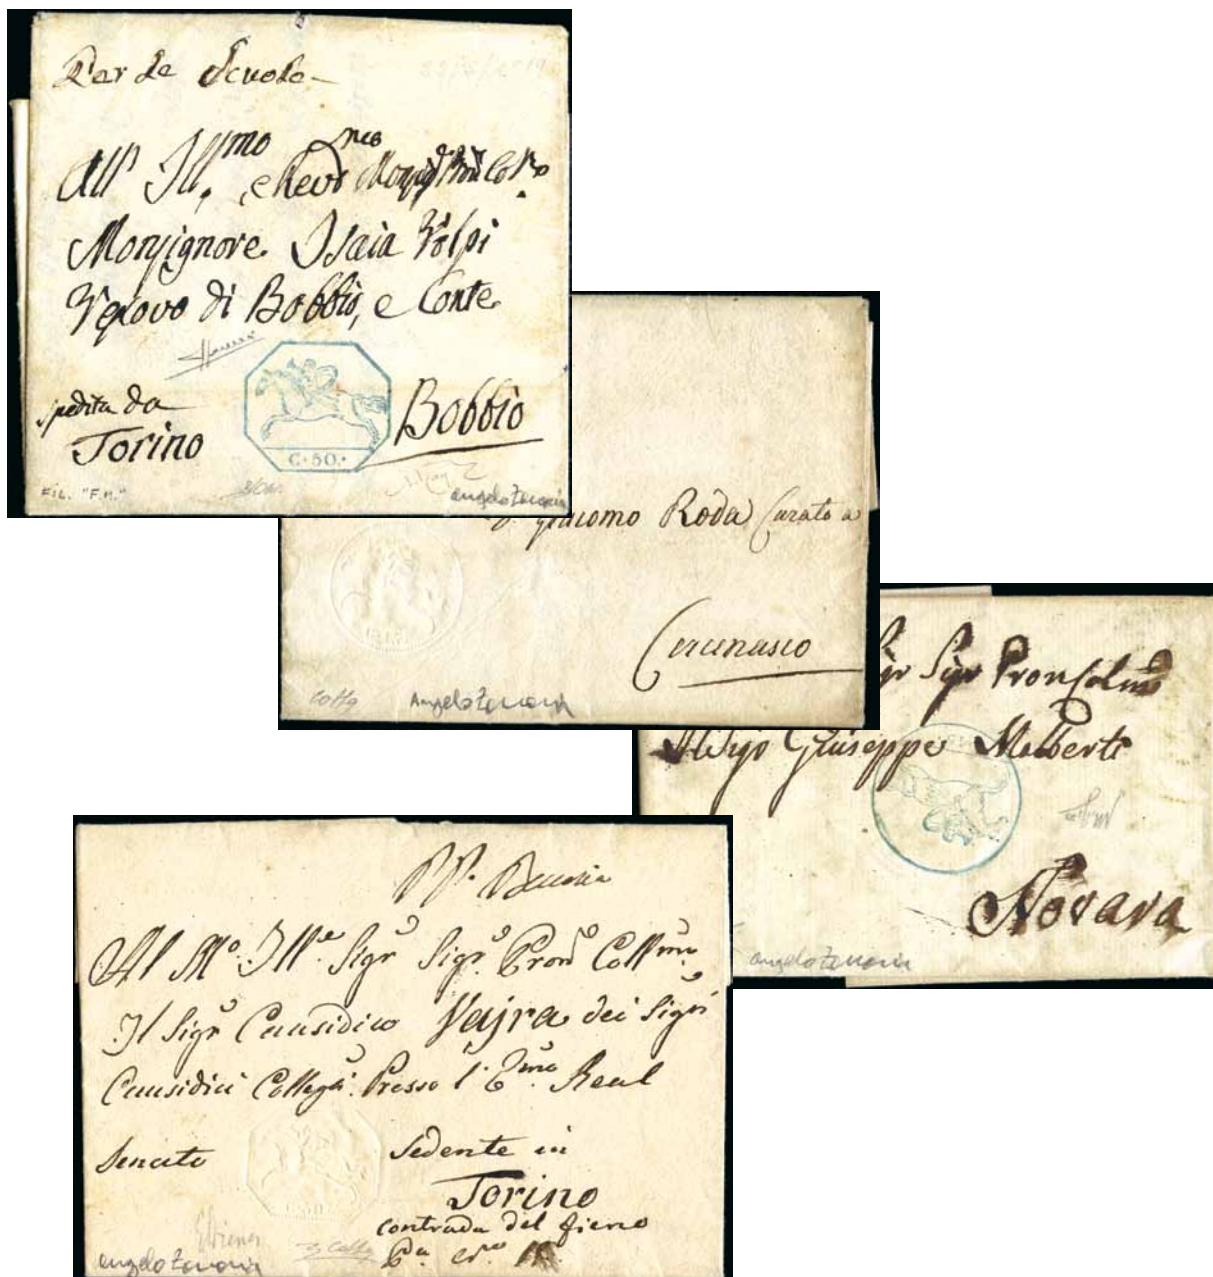 Per le Scuole
All' Ill.mo e Rev.mo
Monsignore Isaia Volpi
Vescovo di Bobbio, e Conte
spedita da
Torino
Bobbio
C. 50.
FIL. "F.M."
angelo Zanaria
Giacomo Roda Curato a
Cercenasco
Angelo Zanaria
Sigr
Giuseppe
Novara
angelo Zanaria
Al M.o Ill.e Sigr Sigr Pron Coll.mo
Il Sigr Causidico Vajra dei Sigri
Causidici Colleg.i Presso l'E.mo Real
Senato
Sedente in
Torino
contrada del fieno
angelo Zanaria